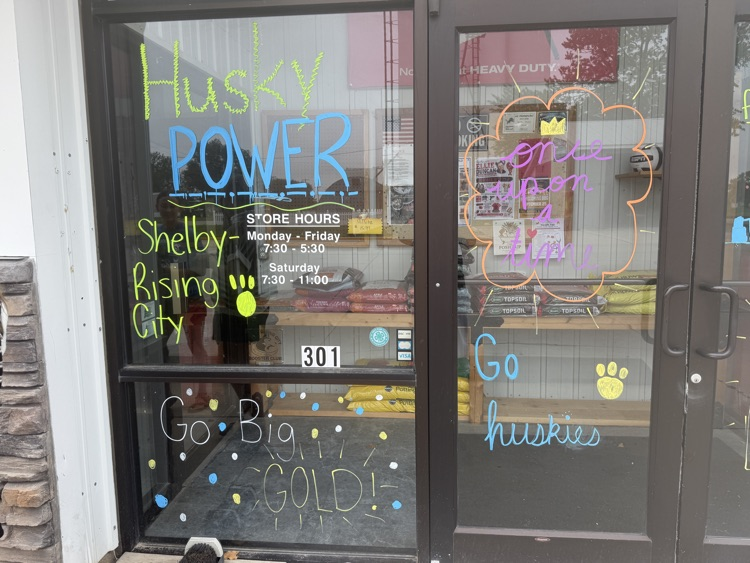 Husky
POWER
STORE HOURS
Monday - Friday
7:30 - 5:30
Saturday
7:30 - 11:00
Shelby-
Rising
City
301
VISA
Go Big
GOLD!
HEAVY DUTY
once
upon
a
time
TOPSOIL TOPSOIL
TOPSOIL TOPSOIL
Go
huskies